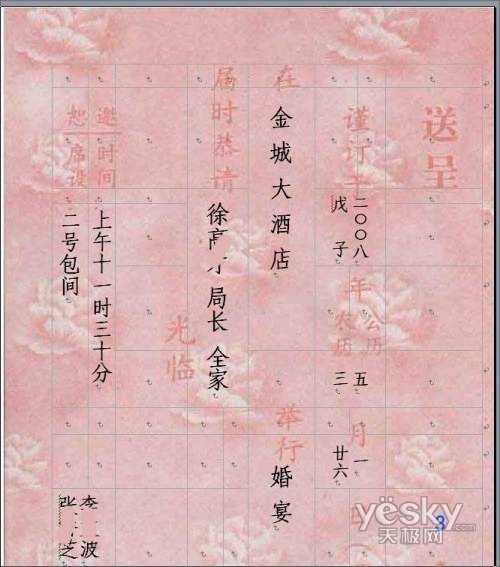 送呈
谨订于
二〇〇八 年 公历 五 月 一
戊子 农历 三 廿六
在 金城大酒店 举行 婚宴
届时恭请
徐 局长 全家
光临
邀 时间 上午十一时三十分
恕 席设 二号包间
李 波
张 之
3
yesky
天极网